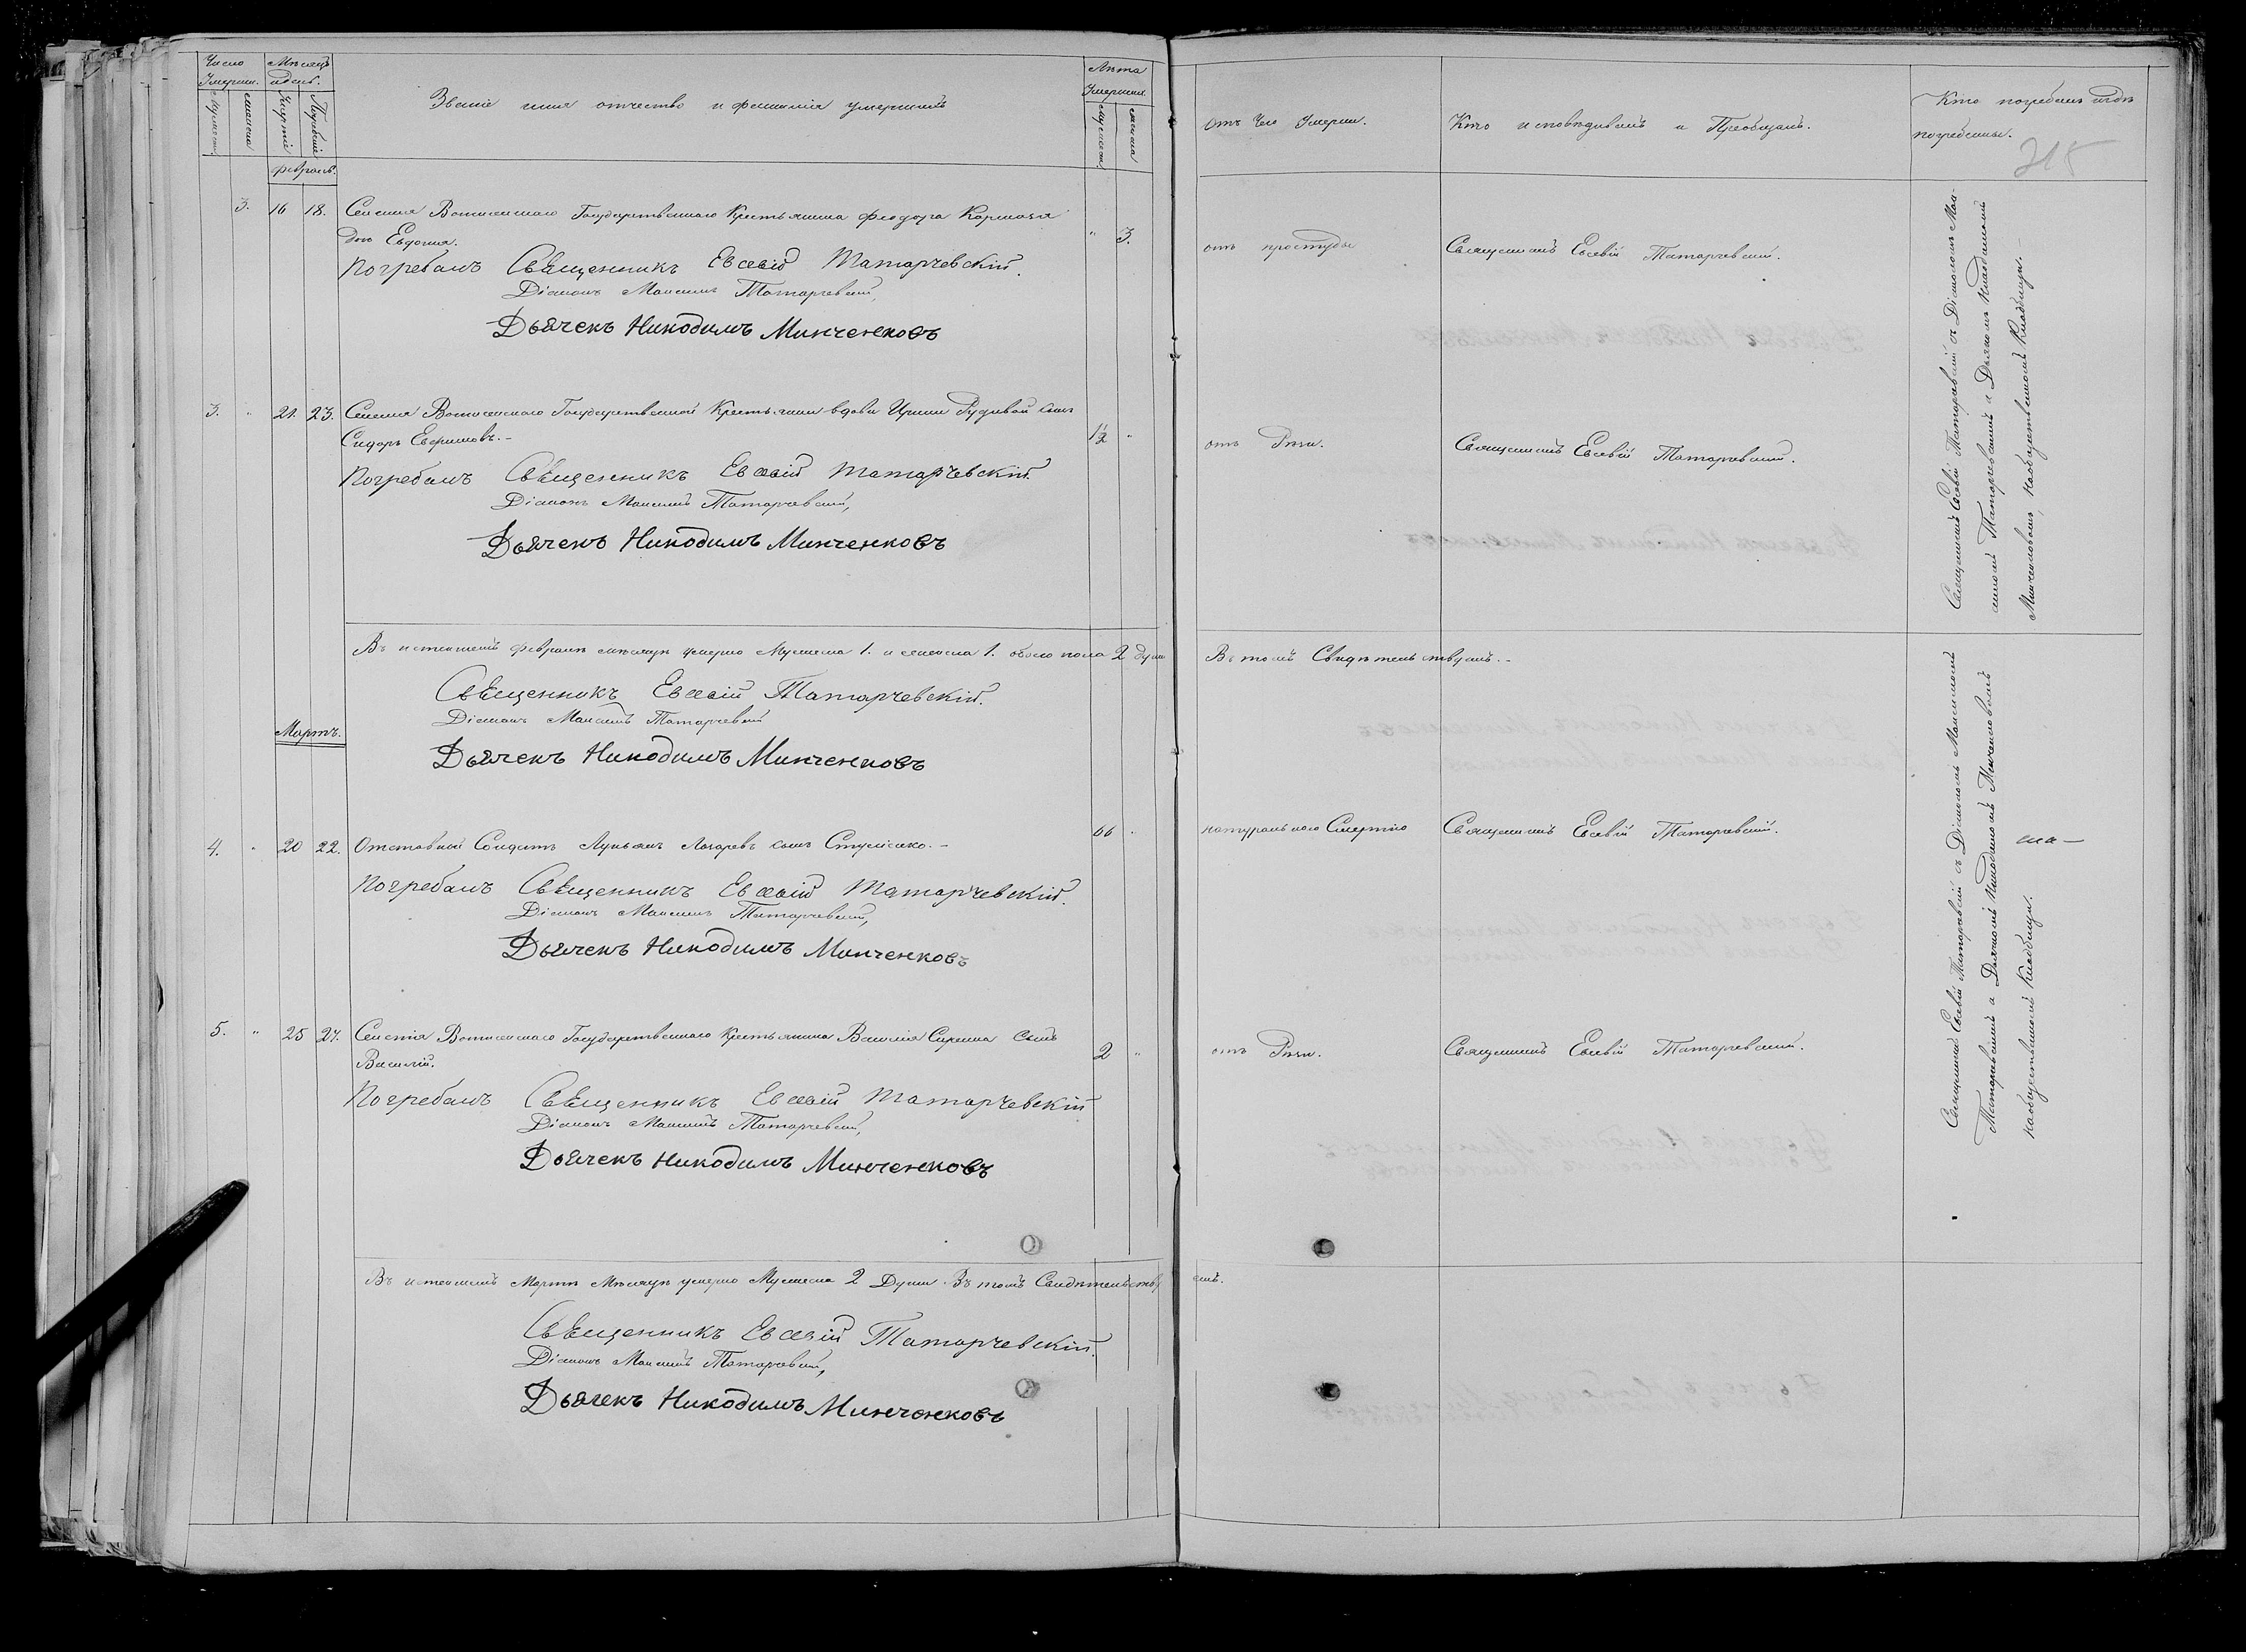 Число Умерш.
Мѣсяцъ и день.
Званіе имя отчество и фамилія умершихъ
Лѣта Умерш.
мужеска
женска
Смерти
Погребенія
мужеска
женска
отъ Чего Умерли.
Кто исповѣдывалъ и Пріобщалъ.
Кто погребалъ и гдѣ
погребены.
315
февраль.
3. 16 18. Селенія Государственнаго Крестьянина Феодора
дочь Евдокія. " 3.
отъ простуды
Священникъ Евсевій Татарчевскій.
Погребалъ Священникъ Евсевій Татарчевскій.
Діаконъ Максимъ Татарчевскій,
Дьячекъ Никодимъ Минченковъ
3. " 21. 23. Селенія Государственной Крестьянки вдовы Ирины сынъ
Сидоръ Ефимовъ.- 1½ "
отъ
Священникъ Евсевій Татарчевскій.
Погребалъ Священникъ Евсевій Татарчевскій
Діаконъ Максимъ Татарчевскій,
Дьячекъ Никодимъ Минченковъ
Священникъ Евсевій Татарчевскій съ Діакономъ Мак-
симомъ Татарчевскимъ и Дьячкомъ Никодимомъ
Минченковымъ, на общественномъ Кладбищѣ.
Въ истекшемъ февралѣ мѣсяцѣ умерло Мужеска 1. и женска 1. обоего пола 2 души
Въ томъ Свидѣтельствуемъ.-
Священникъ Евсевій Татарчевскій.
Діаконъ Максимъ Татарчевскій
Дьячекъ Никодимъ Минченковъ
Мартъ.
4. " 20 22. Отставный Солдатъ Лукьянъ Лазаревъ сынъ - 66 "
натуральною Смертію
Священникъ Евсевій Татарчевскій.
Погребалъ Священникъ Евсевій Татарчевскій.
Діаконъ Максимъ Татарчевскій,
Дьячекъ Никодимъ Минченковъ
5. " 25 27. Селенія Государственнаго Крестьянина Василія Сынъ
Василій. 2 "
отъ
Священникъ Евсевій Татарчевскій.
Погребалъ Священникъ Евсевій Татарчевскій
Діаконъ Максимъ Татарчевскій,
Дьячекъ Никодимъ Минченковъ
Священникъ Евсевій Татарчевскій съ Діакономъ Максимомъ
Татарчевскимъ и Дьячкомъ Никодимомъ Минченковымъ
на общественномъ Кладбищѣ.
Въ истекшемъ Мартѣ Мѣсяцѣ умерло Мужеска 2 Души Въ томъ Свидѣтельствуемъ.
Священникъ Евсевій Татарчевскій.
Діаконъ Максимъ Татарчевскій,
Дьячекъ Никодимъ Минченковъ